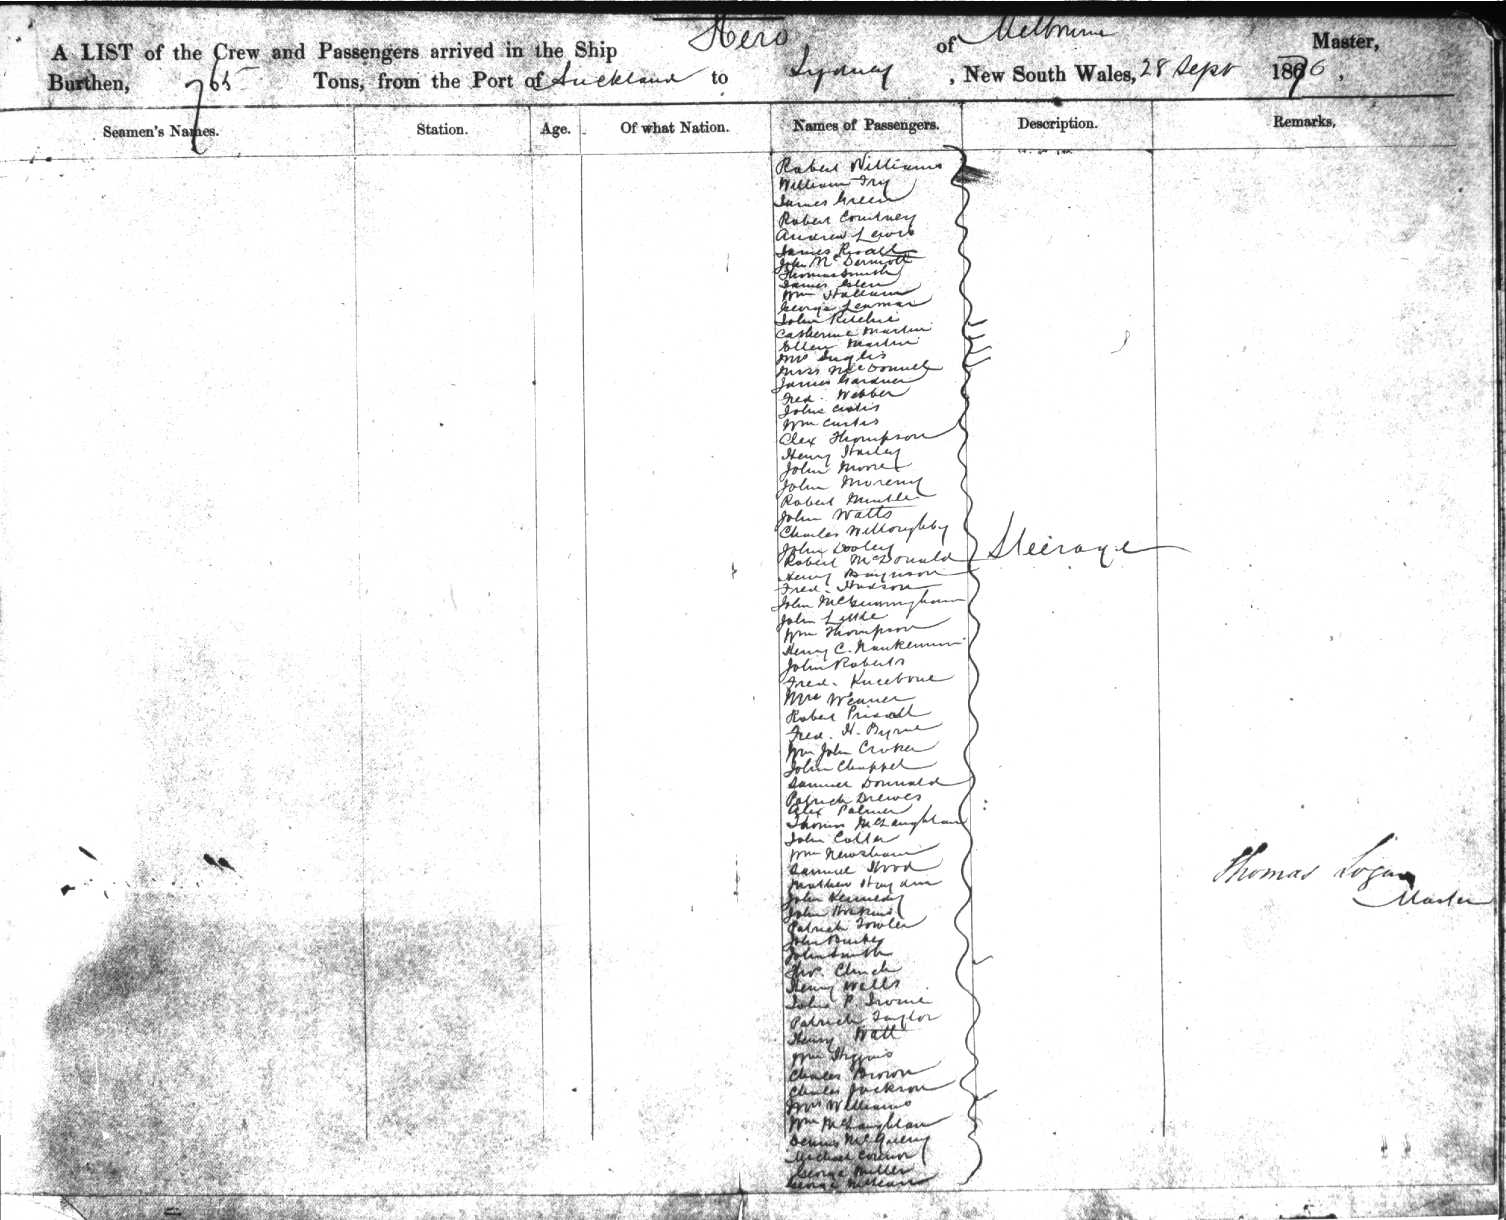 A LIST of the Crew and Passengers arrived in the Ship Hero of Melbourne Master,
Burthen, 765 Tons, from the Port of Auckland to Sydney, New South Wales, 28 Sept 1876,
Seamen's Names. Station. Age. Of what Nation. Names of Passengers. Description. Remarks,
Robert Williams
William Fry
James Green
Robert Courtney
Andrew Lewis
James
John McDermott
Thomas Smith
James Glen
Wm Hallam
George Leaman
John Ritchie
Catherine Martin
Ellen Martin
Mrs Inglis
Miss McDonnell
James Gardner
Fred. Webber
John Curtis
Wm Curtis
Alex Thompson
Henry Hurley
John Moore
John Moreny
Robert
John Watts
Charles Willoughby
John Dooley
Robert McDonald Steerage
Henry
Fred. Hudson
John McCunningham
John Little
Wm Thompson
Henry C.
John Roberts
Fred. Kneebone
Mrs Weaver
Robert
Fred. H. Byrne
Wm John Croker
John Chappel
Samuel Donnald
Patrick Drewes
Alex Palmer
Thomas McLaughlan
John Colter
Wm Newsham
Samuel Wood
Thomas Logan
Mathew Haydon
Master
John Kennedy
John Hopkins
Patrick Fowler
John Burke
John Smith
Clinch
Henry Wells
John P.
Patrick Taylor
Henry Watt
Wm Higgins
Charles Brown
Charles Jackson
Mrs Williams
Wm McLaughlan
Dennis
Michael Connor
George Miller
George McLean